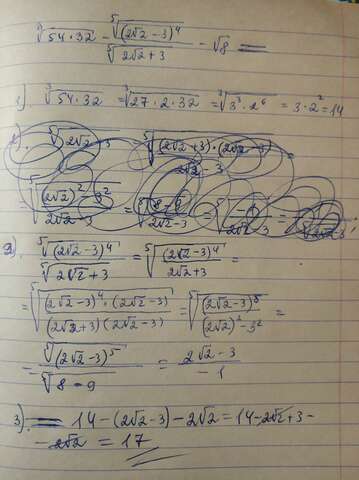 ∛(54·32) − ⁵√((2√2−3)⁴) / ⁵√(2√2+3) − √8 =
1). ∛(54·32) = ∛(27·2·32) = ∛(3³·2⁶) = 3·2² = 14
2). ⁵√((2√2−3)⁴) / ⁵√(2√2+3) = ⁵√((2√2−3)⁴ / (2√2+3)) =
= ⁵√((2√2−3)⁴·(2√2−3) / (2√2+3)(2√2−3)) = ⁵√((2√2−3)⁵ / ((2√2)²−3²)) =
= ⁵√((2√2−3)⁵) / ⁵√(8−9) = (2√2−3) / −1
3). 14 − (2√2−3) − 2√2 = 14 − 2√2 + 3 −
− 2√2 = 17